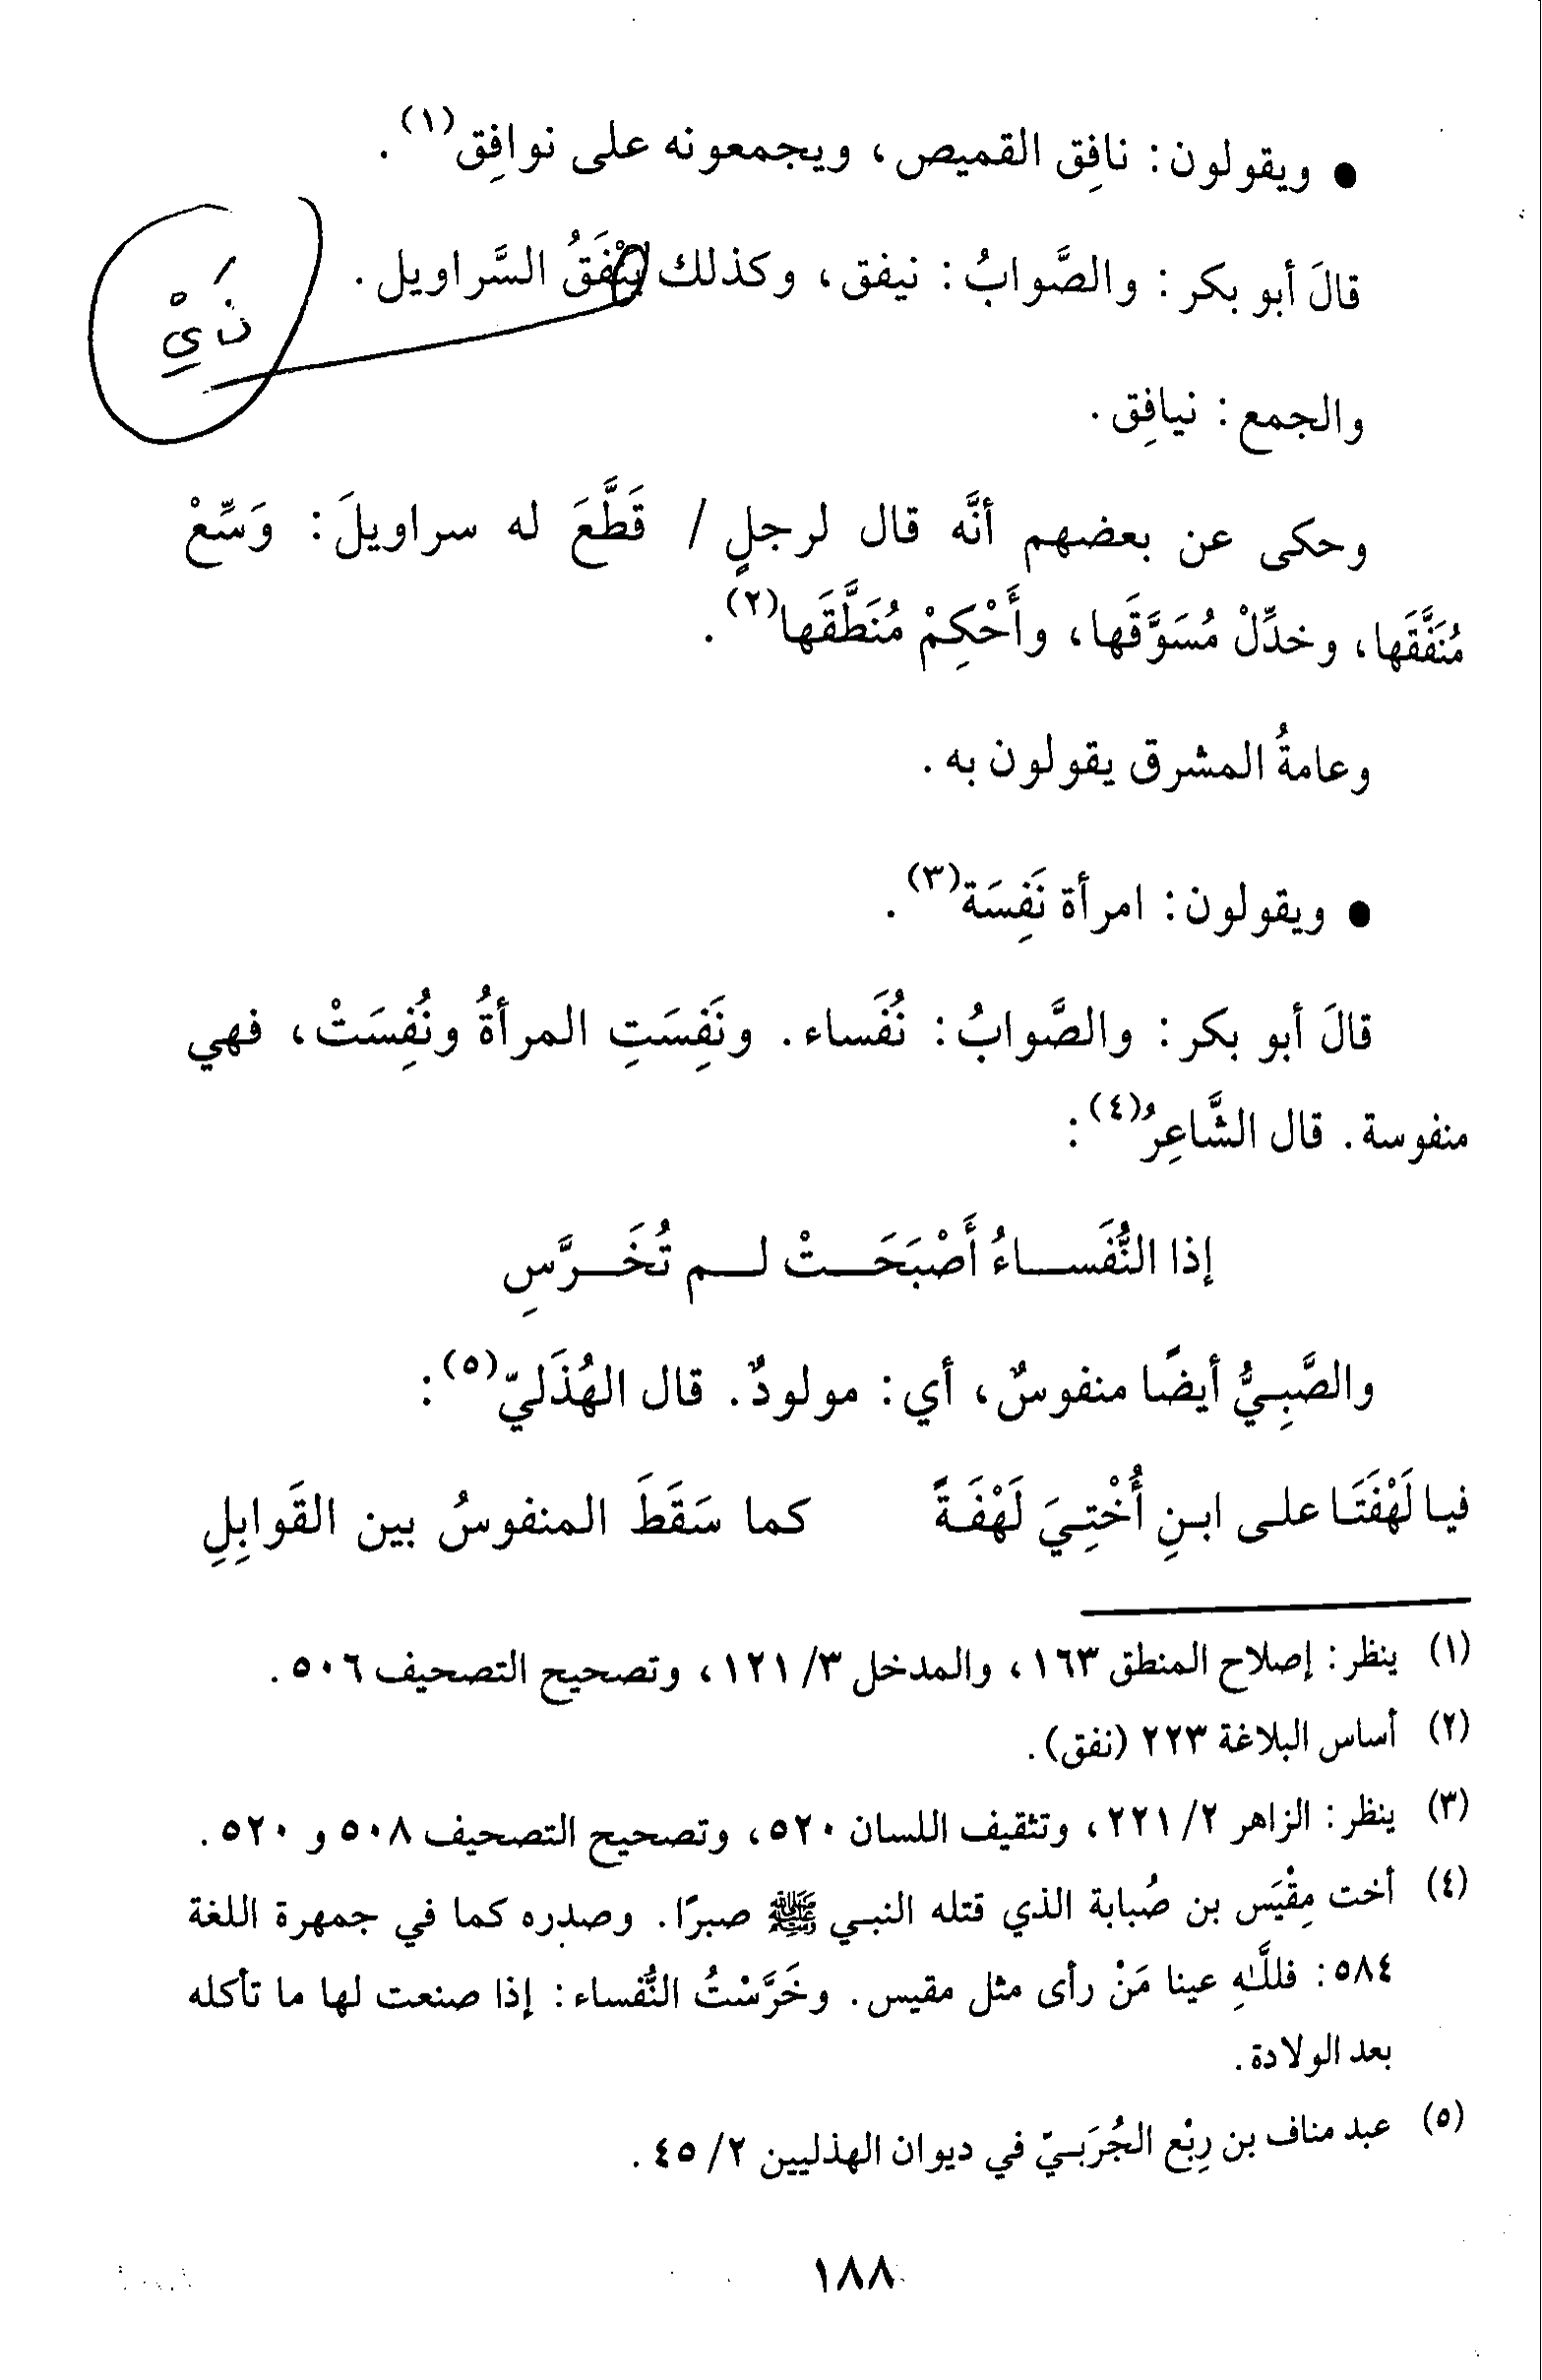 • ويقولون: نافِق القميص، ويجمعونه على نوافِق(١).
قالَ أبو بكر: والصَّوابُ: نيفق، وكذلك يِنْفَقُ السَّراويل.
نَـيْـ
والجمع: نيافِق.
وحكى عن بعضهم أنَّه قال لرجلٍ / قَطَّعَ له سراويلَ: وَسِّعْ
مُنَفَّقَها، وخدِّلْ مُسَوَّقَها، وأَحْكِمْ مُنَطَّقَها(٢).
وعامةُ المشرق يقولون به.
• ويقولون: امرأة نَفِسَة(٣).
قالَ أبو بكر: والصَّوابُ: نُفَساء. ونَفِسَتِ المرأةُ ونُفِسَتْ، فهي
منفوسة. قال الشَّاعِرُ(٤):
إذا النُّفَســاءُ أَصْبَحَــتْ لــم تُخَــرَّسِ
والصَّبِيُّ أيضًا منفوسٌ، أي: مولودٌ. قال الهُذَليّ(٥):
فيا لَهْفَتَا على ابنِ أُخْتِيَ لَهْفَةً كما سَقَطَ المنفوسُ بين القَوابِلِ
(١) ينظر: إصلاح المنطق ١٦٣، والمدخل ٣/ ١٢١، وتصحيح التصحيف ٥٠٦.
(٢) أساس البلاغة ٢٢٣ (نفق).
(٣) ينظر: الزاهر ٢/ ٢٢١، وتثقيف اللسان ٥٢٠، وتصحيح التصحيف ٥٠٨ و ٥٢٠.
(٤) أخت مِقْيَس بن صُبابة الذي قتله النبي ﷺ صبرًا. وصدره كما في جمهرة اللغة
٥٨٤: فللَّهِ عينا مَنْ رأى مثل مقيس. وخَرَّسْتُ النُّفساء: إذا صنعت لها ما تأكله
بعد الولادة.
(٥) عبد مناف بن رِبْع الجُرَبيّ في ديوان الهذليين ٢/ ٤٥.
١٨٨